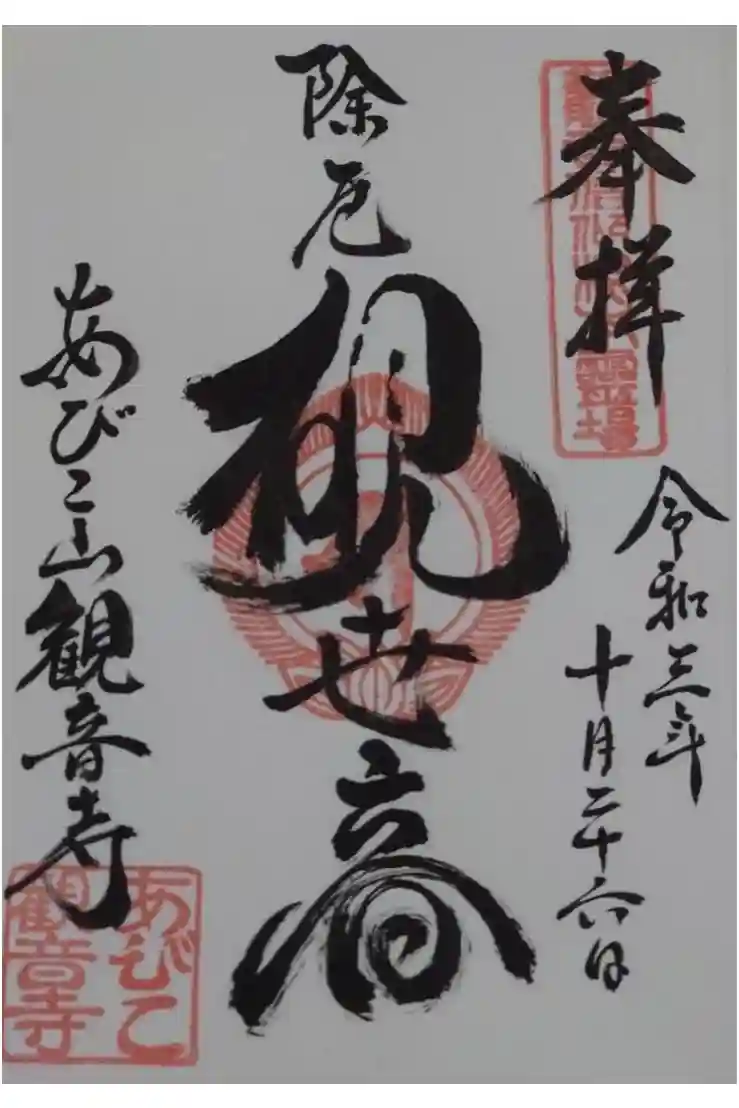 奉拝
霊場
令和三年
十月二十六日
除厄
観世音
あびこ山観音寺
あびこ
観音寺